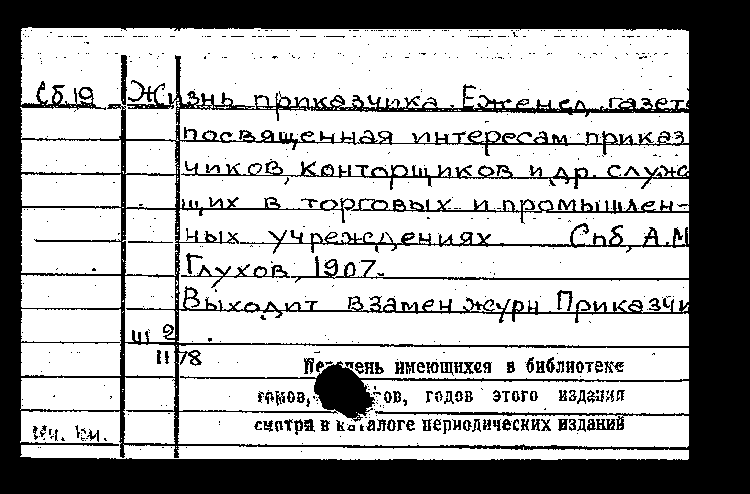 Сб 19 Жизнь приказчика. Еженед. газета
посвященная интересам приказ
чиков, конторщиков и др. служа
щих в торговых и промышлен-
ных учреждениях. Спб, А.М
Глухов, 1907.
Выходит взамен журн Приказчи
ш 2
II 78
Перечень имеющихся в библиотеке
томов, годов этого издания
смотри в каталоге периодических изданий